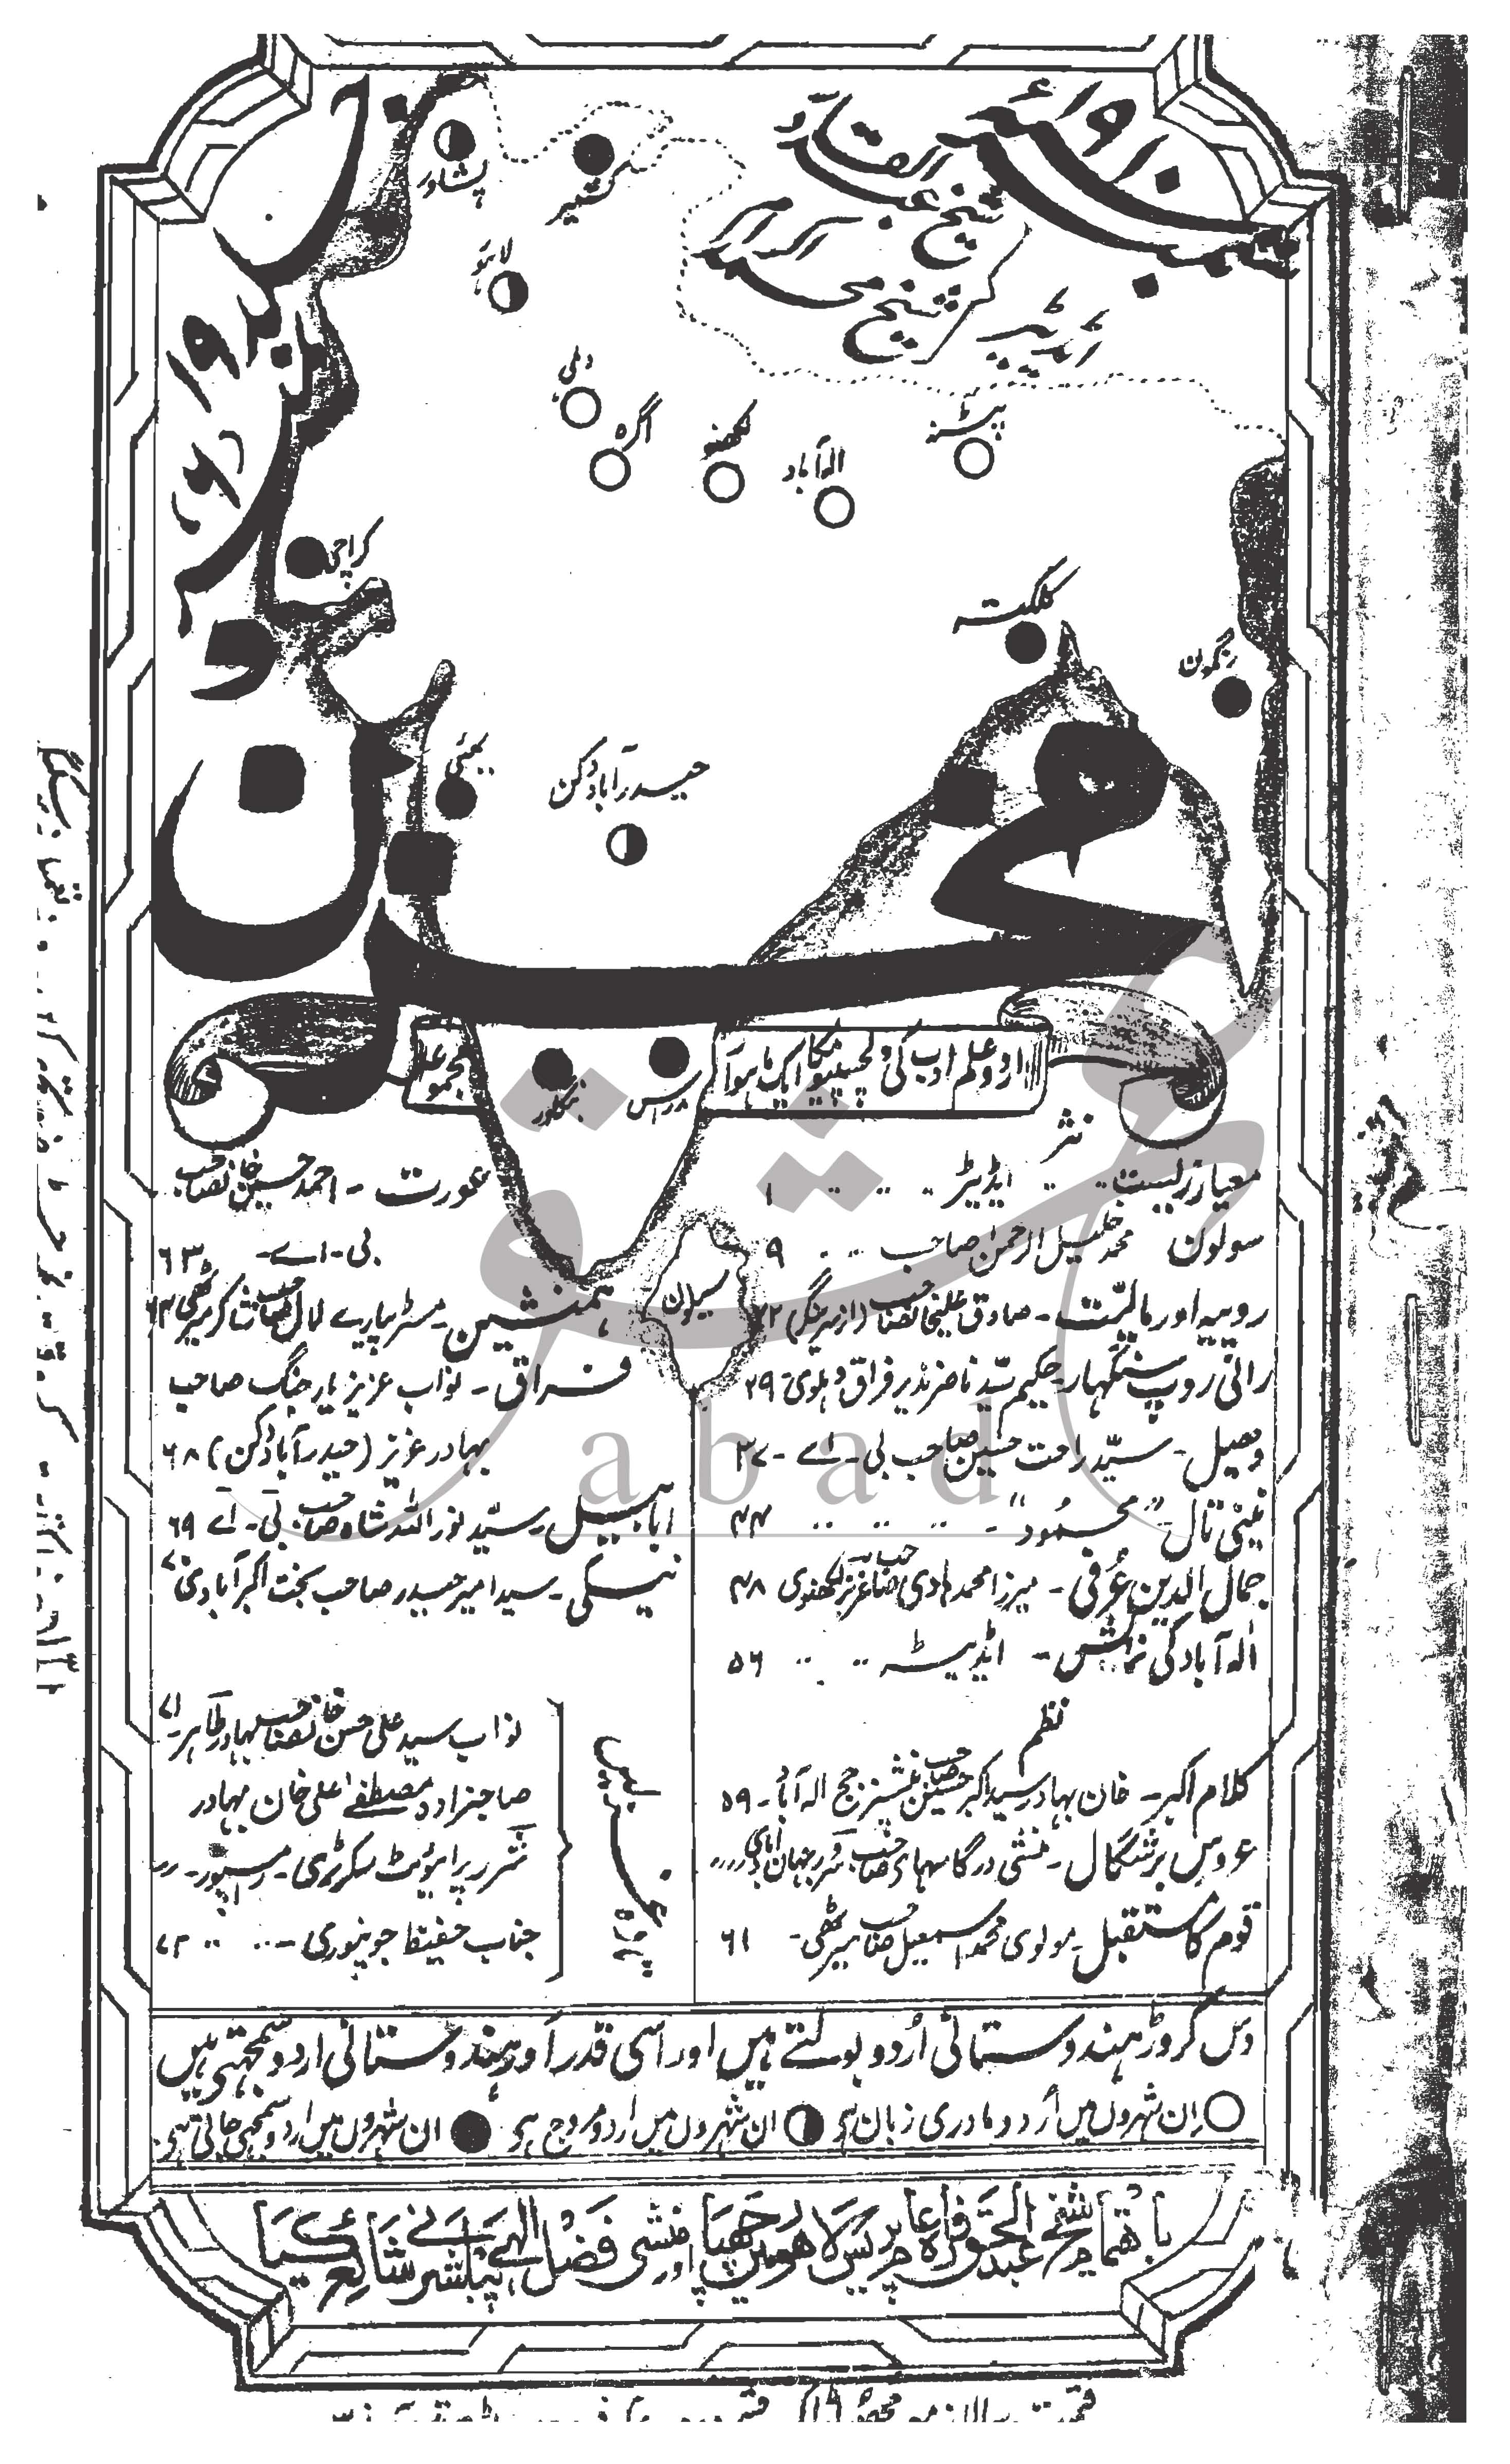 ستمبر ۱۹۱۰ء
شیخ عبدالقادر
شیخ محمد اکرام
ایڈیٹر
پشاور
کشمیر
لاہور
دہلی
آگرہ
لکھنؤ
الہ آباد
پٹنہ
کراچی
کلکتہ
رنگون
بمبئی
حیدرآباد دکن
مخزن
اردو علم ادب کی دلچسپیونکا ایک ماہوار
مجموعہ
بنگلور
مدراس
سیلون
نثر
معیار زیست .. .. ایڈیٹر .. .. ۱
سولون محمد خلیل الرحمٰن صاحب .. .. ۹
روپیہ اور مالیت - صادق علیخانصاحب (از سرینگر) ۲۲
رانی روپ سنگھار - حکیم سیّد ناصر نذیر فراق دہلوی ۲۹
وصیل - سیّد راحت حسین صاحب بی - اے - ۳۷
نینی تال "محمود" - .. .. .. ۴۴
جمال الدین عُرفی - میرزا محمد ہادی صاحب عزیز لکھنوی ۴۸
الٰہ آباد کی نمائش - ایڈیٹر .. .. ۵۶
نظم
کلام اکبر - خان بہادر سید اکبر حسین صاحب پنشنر جج الہ آباد - ۵۹
عروس برشگال - منشی درگا سہای صاحب سرور جہان آبادی
قوم کا مستقبل - مولوی محمد اسمعیل صاحب میرٹھی - ۶۱
عورت - احمد حسین خانصاحب
بی - اے - ۶۳
ہمنشین - مسٹر پیارے لال صاحب شاکر میرٹھی ۶۴
فراق - نواب عزیز یار جنگ صاحب
بہادر عزیز (حیدرآباد دکن) ۶۸
ابابیل - سیّد نور اللہ شاہ صاحب بی - اے ۶۹
نیکی - سید امیر حیدر صاحب بخت اکبرآبادی
تازہ غزلیں
نواب سید علی حسن خانصاحب بہادر طاہر - ۷۱
صاحبزادہ مصطفےٰ علی خان بہادر
شرر پرایوئٹ سکرٹری - رامپور - رر
جناب حفیظ جونپوری - .. .. ۷۲
دس کروڑ ہندوستانی اُردو بولتے ہیں اور اسی قدر اور ہندوستانی اردو سمجھتے ہیں
اِن شہروں میں اُردو مادری زبان ہی ان شہروں میں اردو مروج ہی ان شہروں میں اردو سمجھی جاتی ہی
باہتمام شیخ عبدالحق رفاہ عام پریس لاہور میں چھپا اور منشی فضل الٰہی پبلشر نے شائع کیا
عشق
abad